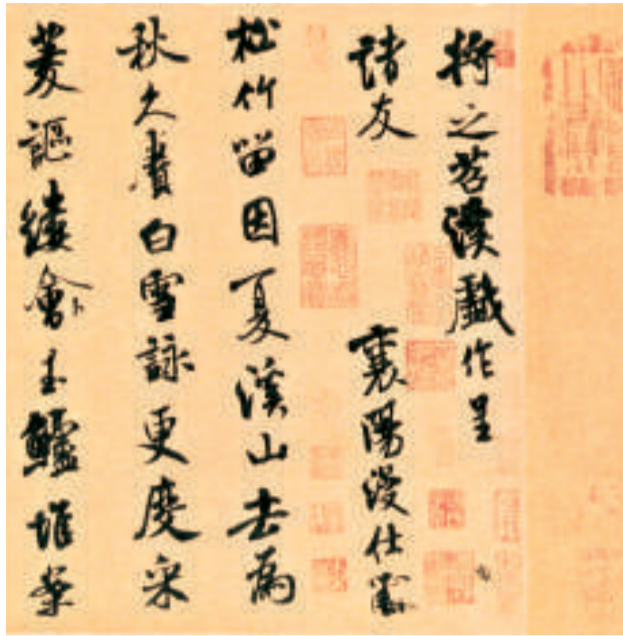 將之苕溪戲作呈
諸友 襄陽漫仕黻
松竹留因夏溪山去為
秋久賡白雪詠更度采
菱謳縷會玉鱸堆案